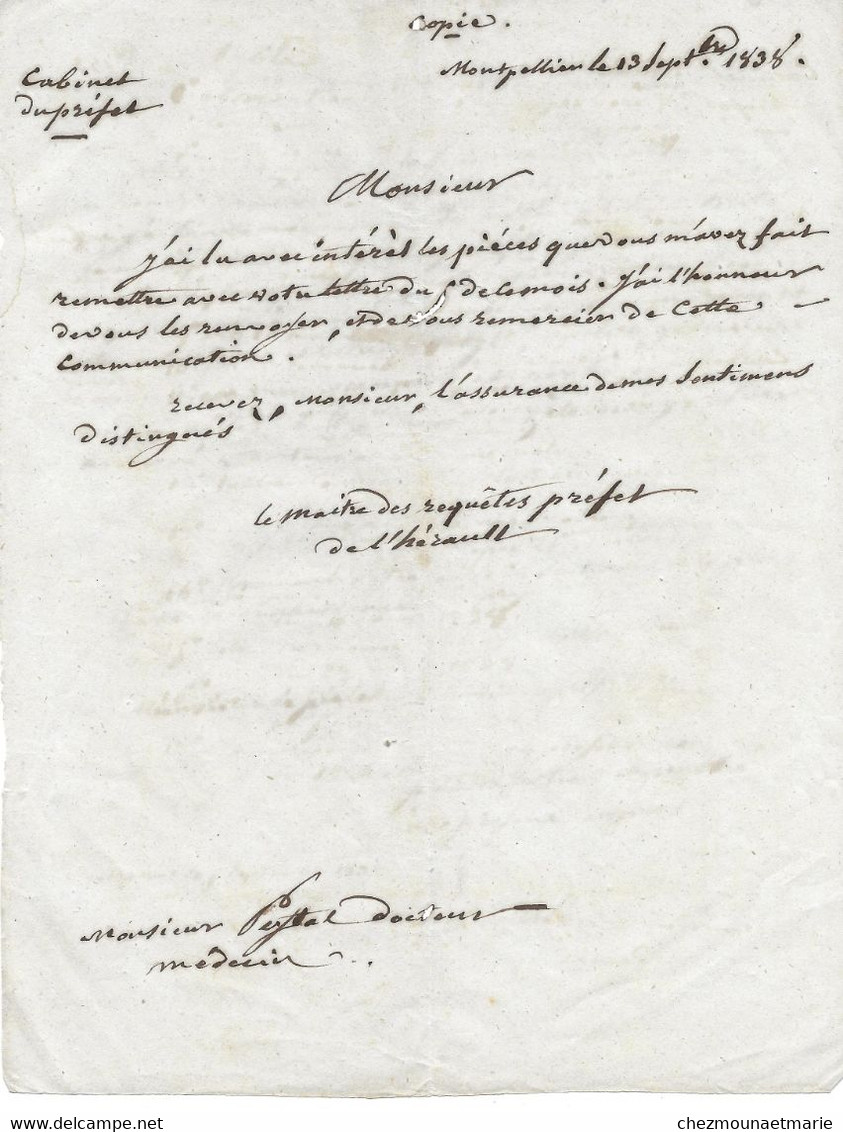 Copie.
Montpellier le 13 Sept.bre 1838.
Cabinet
du préfet
Monsieur
J'ai lu avec intérèt les pièces que vous m'avez fait
remettre avec votre lettre du de ce mois. J'ai l'honneur
de vous les renvoyer, et de vous remercier de Cette
Communication.
recevez, Monsieur, l'assurance de mes Sentimens
distingués
Le Maitre des requêtes préfet
de l'hérault
Monsieur docteur
médecin
chezmounaetmarie